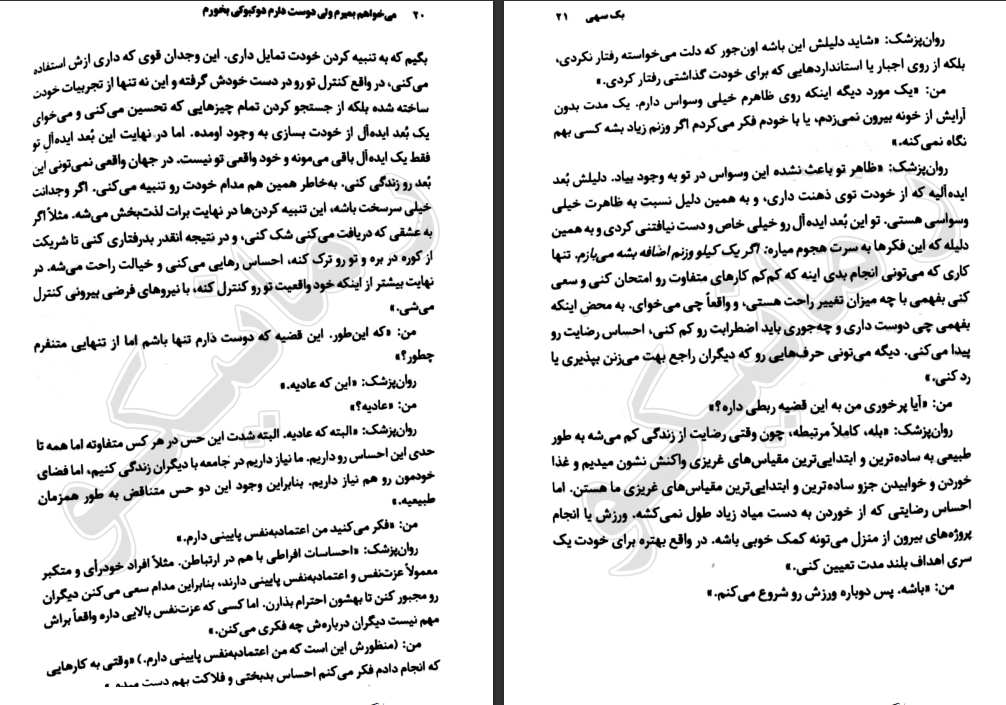 ۲۰ می‌خواهم بمیرم ولی دوست دارم دوکبوکی بخورم
بگیم که به تنبیه کردن خودت تمایل داری. این وجدان قوی که داری ازش استفاده
می‌کنی، در واقع کنترل تو رو در دست خودش گرفته و این نه تنها از تجربیات خودت
ساخته شده بلکه از جستجو کردن تمام چیزهایی که تحسین می‌کنی و می‌خوای
یک بُعد ایده‌آل از خودت بسازی به وجود اومده. اما در نهایت این بُعد ایده‌آل تو
فقط یک ایده‌آل باقی می‌مونه و خود واقعی تو نیست. در جهان واقعی نمی‌تونی این
بُعد رو زندگی کنی. به‌خاطر همین هم مدام خودت رو تنبیه می‌کنی. اگر وجدانت
خیلی سرسخت باشه، این تنبیه کردن‌ها در نهایت برات لذت‌بخش می‌شه. مثلاً اگر
به عشقی که دریافت می‌کنی شک کنی، و در نتیجه انقدر بدرفتاری کنی تا شریکت
از کوره در بره و تو رو ترک کنه، احساس رهایی می‌کنی و خیالت راحت می‌شه. در
نهایت بیشتر از اینکه خود واقعیت تو رو کنترل کنه، با نیروهای فرضی بیرونی کنترل
می‌شی.»
من: «که این‌طور. این قضیه که دوست دارم تنها باشم اما از تنهایی متنفرم
چطور؟»
روان‌پزشک: «این که عادیه.»
من: «عادیه؟»
روان‌پزشک: «البته که عادیه. البته شدت این حس در هر کس متفاوته اما همه تا
حدی این احساس رو داریم. ما نیاز داریم در جامعه با دیگران زندگی کنیم، اما فضای
خودمون رو هم نیاز داریم. بنابراین وجود این دو حس متناقض به طور همزمان
طبیعیه.»
من: «فکر می‌کنید من اعتمادبه‌نفس پایینی دارم.»
روان‌پزشک: «احساسات افراطی با هم در ارتباطن. مثلاً افراد خودرأی و متکبر
معمولاً عزت‌نفس و اعتمادبه‌نفس پایینی دارند، بنابراین مدام سعی می‌کنن دیگران
رو مجبور کنن تا بهشون احترام بذارن. اما کسی که عزت‌نفس بالایی داره واقعاً براش
مهم نیست دیگران درباره‌ش چه فکری می‌کنن.»
من: (منظورش این است که من اعتمادبه‌نفس پایینی دارم.) «وقتی به کارهایی
که انجام دادم فکر می‌کنم احساس بدبختی و فلاکت بهم دست میده.»
بک سهی ۲۱
روان‌پزشک: «شاید دلیلش این باشه اون‌جور که دلت می‌خواسته رفتار نکردی،
بلکه از روی اجبار یا استانداردهایی که برای خودت گذاشتی رفتار کردی.»
من: «یک مورد دیگه اینکه روی ظاهرم خیلی وسواس دارم. یک مدت بدون
آرایش از خونه بیرون نمی‌زدم، یا با خودم فکر می‌کردم اگر وزنم زیاد بشه کسی بهم
نگاه نمی‌کنه.»
روان‌پزشک: «ظاهر تو باعث نشده این وسواس در تو به وجود بیاد. دلیلش بُعد
ایده‌آلیه که از خودت توی ذهنت داری، و به همین دلیل نسبت به ظاهرت خیلی
وسواسی هستی. تو این بُعد ایده‌آل رو خیلی خاص و دست نیافتنی کردی و به همین
دلیله که این فکرها به سرت هجوم میاره: اگر یک کیلو وزنم اضافه بشه می‌بازم. تنها
کاری که می‌تونی انجام بدی اینه که کم‌کم کارهای متفاوت رو امتحان کنی و سعی
کنی بفهمی با چه میزان تغییر راحت هستی، و واقعاً چی می‌خوای. به محض اینکه
بفهمی چی دوست داری و چه‌جوری باید اضطرابت رو کم کنی، احساس رضایت رو
پیدا می‌کنی. دیگه می‌تونی حرف‌هایی رو که دیگران راجع بهت می‌زنن بپذیری یا
رد کنی.»
من: «آیا پرخوری من به این قضیه ربطی داره؟»
روان‌پزشک: «بله، کاملاً مرتبطه، چون وقتی رضایت از زندگی کم می‌شه به طور
طبیعی به ساده‌ترین و ابتدایی‌ترین مقیاس‌های غریزی واکنش نشون میدیم و غذا
خوردن و خوابیدن جزو ساده‌ترین و ابتدایی‌ترین مقیاس‌های غریزی ما هستن. اما
احساس رضایتی که از خوردن به دست میاد زیاد طول نمی‌کشه. ورزش یا انجام
پروژه‌های بیرون از منزل می‌تونه کمک خوبی باشه. در واقع بهتره برای خودت یک
سری اهداف بلند مدت تعیین کنی.»
من: «باشه. پس دوباره ورزش رو شروع می‌کنم.»